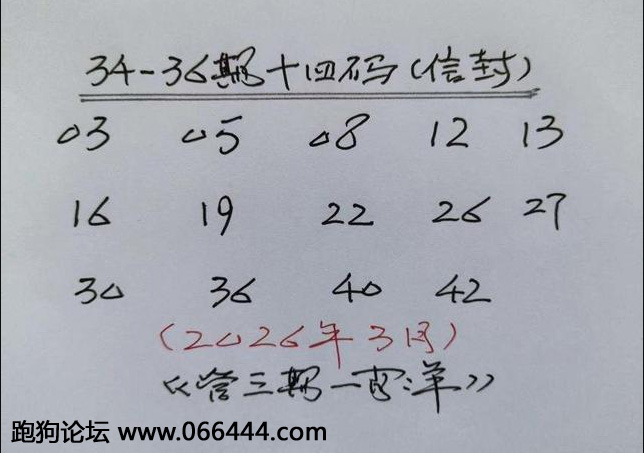 34-36期十四码(信封)
03 05 08 12 13
16 19 22 26 27
30 36 40 42
(2026年3月)
《管三期一肖:羊》
跑狗论坛 www.066444.com